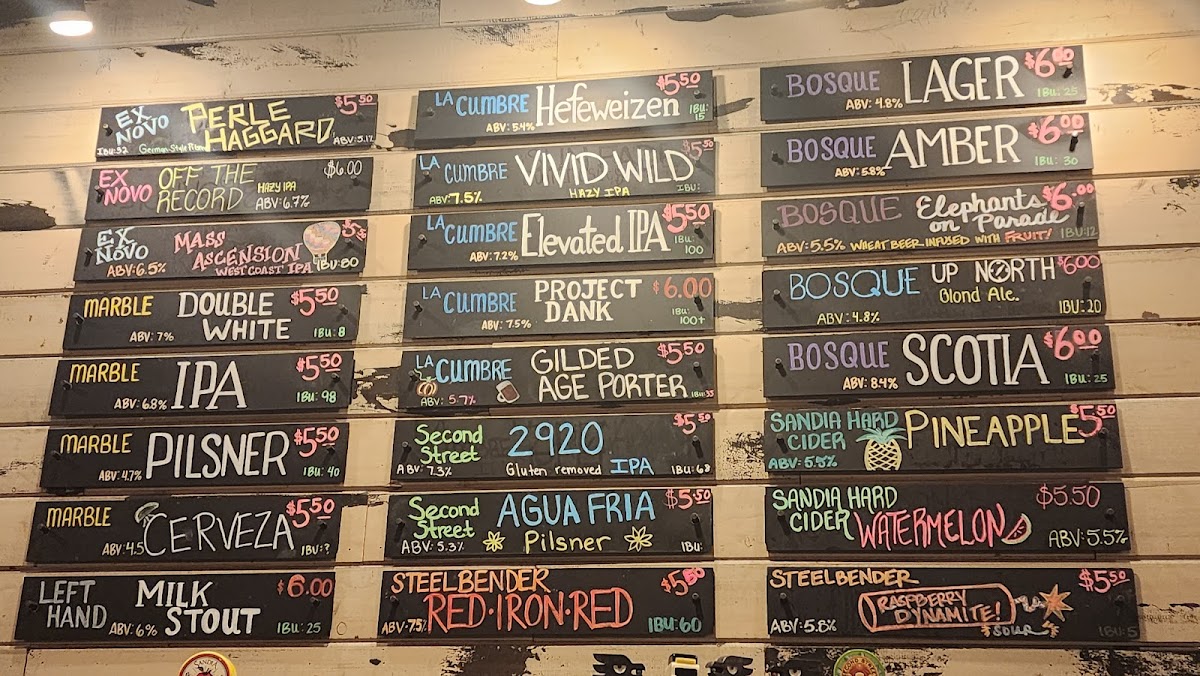 EX NOVO PERLE HAGGARD $5.50
IBU:32 German Style Pilsner ABV:5.1%
EX NOVO OFF THE RECORD HAZY IPA $6.00
ABV:6.7%
EX NOVO MASS ASCENSION
ABV:6.5% WEST COAST IPA IBU:80
MARBLE DOUBLE WHITE $5.50
ABV:7% IBU:8
MARBLE IPA $5.50
ABV:6.8% IBU:98
MARBLE PILSNER $5.50
ABV:4.7% IBU:40
MARBLE CERVEZA $5.50
ABV:4.5 IBU:?
LEFT HAND MILK STOUT $6.00
ABV:6% IBU:25
LA CUMBRE Hefeweizen $5.50
ABV:5.4% IBU:15
LA CUMBRE VIVID WILD $5.50
ABV:7.5% HAZY IPA IBU:
LA CUMBRE Elevated IPA $5.50
ABV:7.2% IBU:100
LA CUMBRE PROJECT DANK $6.00
ABV:7.5% IBU:100+
LA CUMBRE GILDED AGE PORTER $5.50
ABV:5.7% IBU:35
Second Street 2920 $5.50
ABV:7.3% Gluten removed IPA IBU:68
Second Street AGUA FRIA $5.50
ABV:5.3% Pilsner IBU:
STEELBENDER RED·IRON·RED $5.50
ABV:7.5% IBU:60
BOSQUE LAGER $6.00
ABV:4.8% IBU:25
BOSQUE AMBER $6.00
ABV:5.8% IBU:30
BOSQUE Elephants on Parade $6.00
ABV:5.5% WHEAT BEER INFUSED WITH FRUIT! IBU:12
BOSQUE UP NORTH $6.00
Blond Ale.
ABV:4.8% IBU:20
BOSQUE SCOTIA $6.00
ABV:8.4% IBU:25
SANDIA HARD CIDER PINEAPPLE $5.50
ABV:5.5%
SANDIA HARD CIDER WATERMELON $5.50
ABV:5.5%
STEELBENDER $5.50
RASPBERRY DYNAMITE!
ABV:5.8% SOUR IBU:5
SANDIA